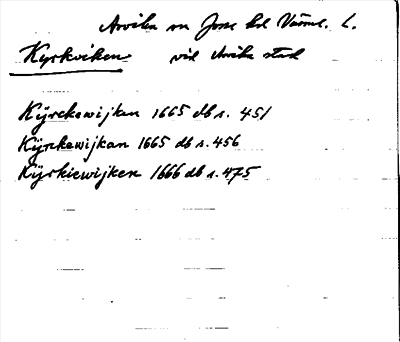 Arvika sn Jösse hd Värml. L.
Kyrkviken vid Arvika stad
Kÿrckewijkan 1665 db s. 451
Kÿrckewijkan 1665 db s. 456
Kÿrkiewijken 1666 db s. 475